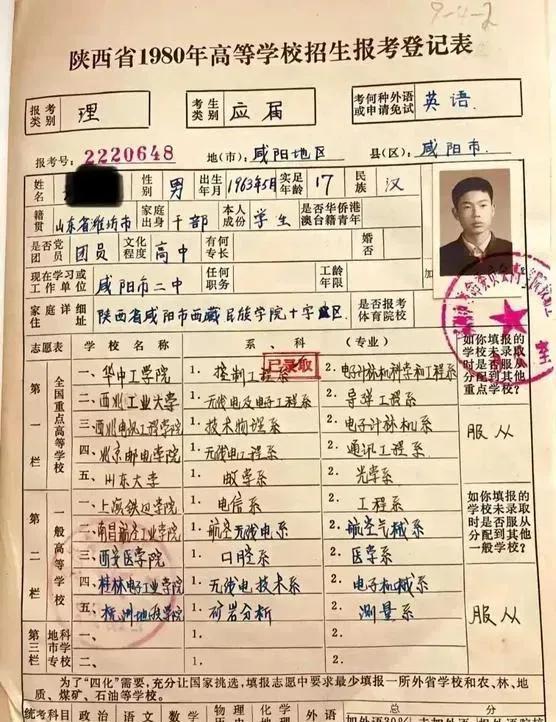 9-4-2
陕西省1980年高等学校招生报考登记表
报考类别 理 考生类别 应届 考何种外语或申请免试 英语
报考号：2220648 地(市)：咸阳地区 县(区)：咸阳市
姓名 性别 男 出生年月 1963年5月 实足年龄 17 民族 汉
籍贯 山东省潍坊市 家庭出身 干部 本人成份 学生 是否华侨港澳台籍青年
是否党团员 团员 文化程度 高中 有何专长 婚否
现在学习或工作单位 咸阳市二中 任何职务 工龄年限
家庭详细住址 陕西省咸阳市西藏民族学院十字 区 是否报考体育院校
志愿表 学校名称 系、科 (专业) 如你填报的学校未录取时是否服从分配到其他重点学校？
第一栏 全国重点高等学校
已录取
一、华中工学院 1.控制工程系 2.电子计算机科学和工程系
二、西北工业大学 1.无线电及电子工程系 2.导弹工程系
三、西北电讯工程学院 1.技术物理系 2.电子计算机系 服从
四、北京邮电学院 1.无线电工程系 2.通讯工程系
五、山东大学 1.数学系 2.光学系
第二栏 一般高等学校
一、上海铁道学院 1.电信系 2.工程系 如你填报的学校未录取时是否服从分配到其他一般学校？
二、南昌航空工业学院 1.航空无线电系 2.航空气械系
三、西安医学院 1.口腔系 2.医学系
四、桂林电子工业学院 1.无线电技术系 2.电子机械系 服从
五、 地质学院 1.矿岩分析 2.测量系
第三栏 地市科学专校
一、 1. 2.
二、 1. 2.
为了“四化”需要，充分让国家挑选，填报志愿中要求最少填报一所外省学校和农、林、地
质、煤矿、石油等学校。
统考科目 政治 语文 数学 物理 化学 外语 总分